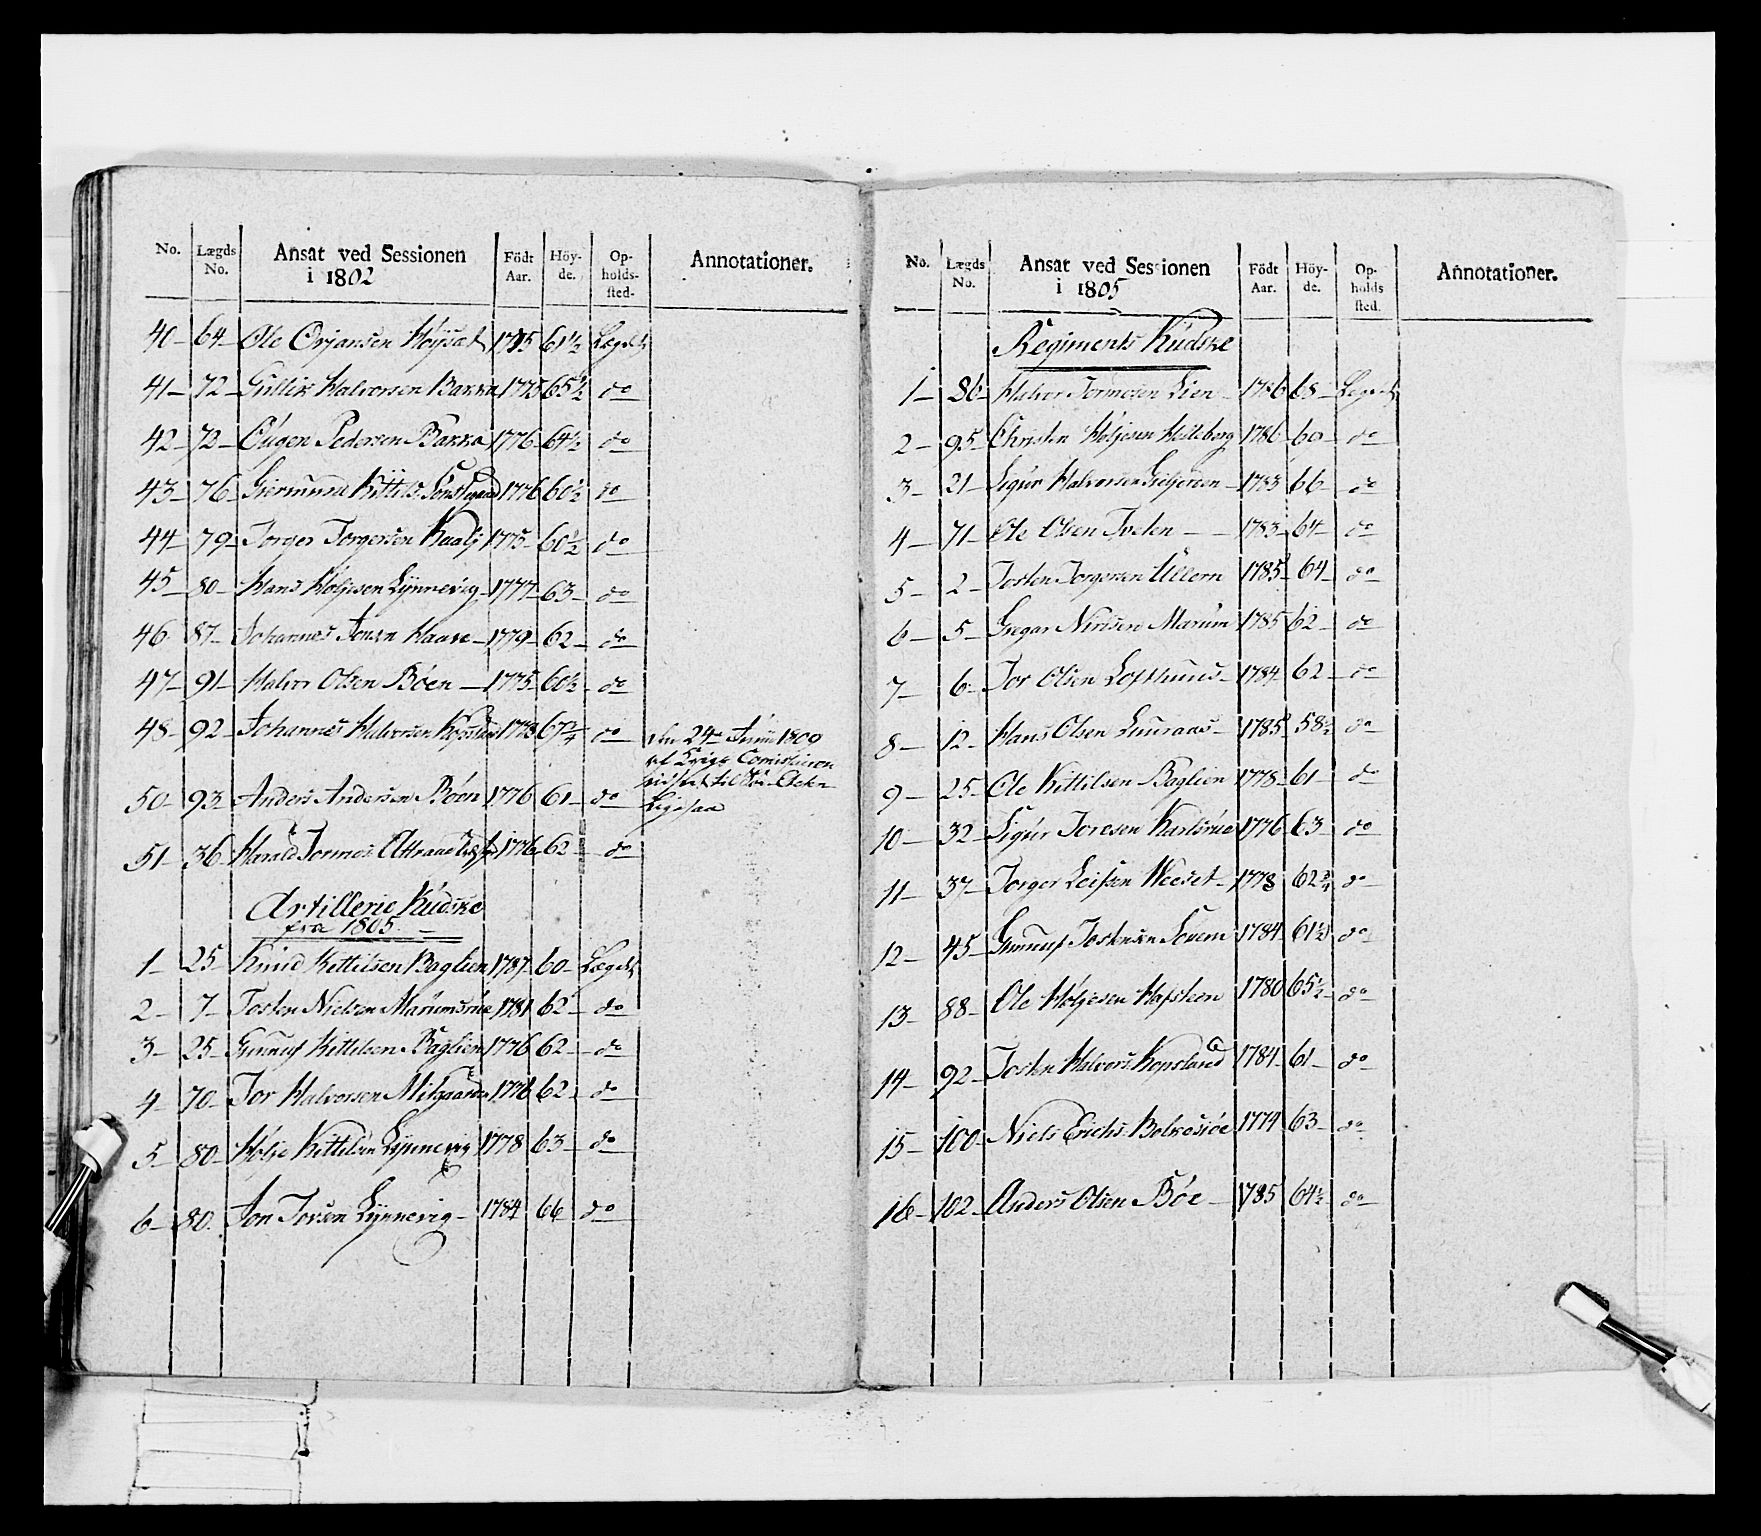 No. Lægds No. Ansat ved Sessionen i 1802 Födt Aar. Höyde. Opholdssted. Annotationer.
40 – 64 – Ole Orjansen Höysæt 1775 61½ Lægdet
41 – 72 – Gullik Halvorsen Bakka 1773 65½ do
42 – 72 – Eügen Pedersen Bakka 1776 – 64½ do
43 – 76 – Giermund Kittels. 1776 60½ do
44 – 79 – Torger Torgersen 1775 – 60½ do
45 – 80 – Hans Holjesen Lÿnnevig – 1777 – 63 – do
46 87 – Johannes Jonsen Haave – 1779 – 62 – do
47 – 91 – Halvor Olsen Böen – 1775 – 60½ – do
48 – 92 – Johannes Halvorsen 1773 67¾ do den 24de Junii 1809
ved Krigs Comissionen
til
50 – 93 – Anders Andersen Böen 1776 61 – do
51 – 36 – Harald Tormos. 1776 62 – do
Artillerie Küdske
fra 1805 –
1 – 25 – Knud Kettilsen Baglien 1787 – 60 – Lægdet
2 – 7 – Tosten Nielsen Marumsrüe 1781 62 – do
3 – 25 – Gunnuf Kittelsen Baglien 1776 62 – do
4 – 70 – Tor Halvorsen Midgaarden 1776 62 – do
5 – 80 – Holje Kittilsen Lÿnnevig 1778 63 – do
6 – 80 – Jon Torsen Lÿnnevig – 1784 66 do
No. Lægds No. Ansat ved Sessionen i 1805 Födt Aar. Höyde. Opholdssted. Annotationer.
Regiments Küdske
1 – 86 – Halvor Tormosen Lien – 1786 68 – Lægdet
2 – 95 – Christen Holjesen 1786 60 – do
3 – 21 – Sigur Halvorsen 1783 66 – do
4 – 71 – Ole Olsen Tveten – – 1783 – 64 – do
5 – 2 – Tosten Torgersen Ullern 1785 – 64 – do
6 – 5 – Gregar Nirisen Marum 1785 62 – do
7 – 6 – Tor Olsen Lofthuus – 1784 62 – do
8 – 12 – Hans Olsen Luuraas – 1785 58½ do
9 – 25 – Ole Kittilsen Baglien 1778 – 61 – do
10 – 32 – Sigur Toresen Karlsrüe 1776 63 do
11 – 37 – Torger Leifsen Veeset – 1778 62¾ do
12 – 45 – Gunnuf Tostensen 1784 61½ do
13 – 88 – Ole Holjesen Hafsteen 1780 65½ do
14 – 92 – Tosten Halvors. Kopsland 1784 61 – do
15 – 100 – Niels Erichs. Bolkesiöe 1774 63 – do
16 – 102 – Anders Olsen Böe – 1785 64½ do